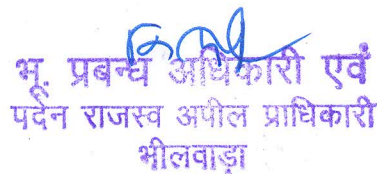 भू. प्रबन्ध अधिकारी एवं
पर्दन राजस्व अपील प्राधिकारी
भीलवाड़ा